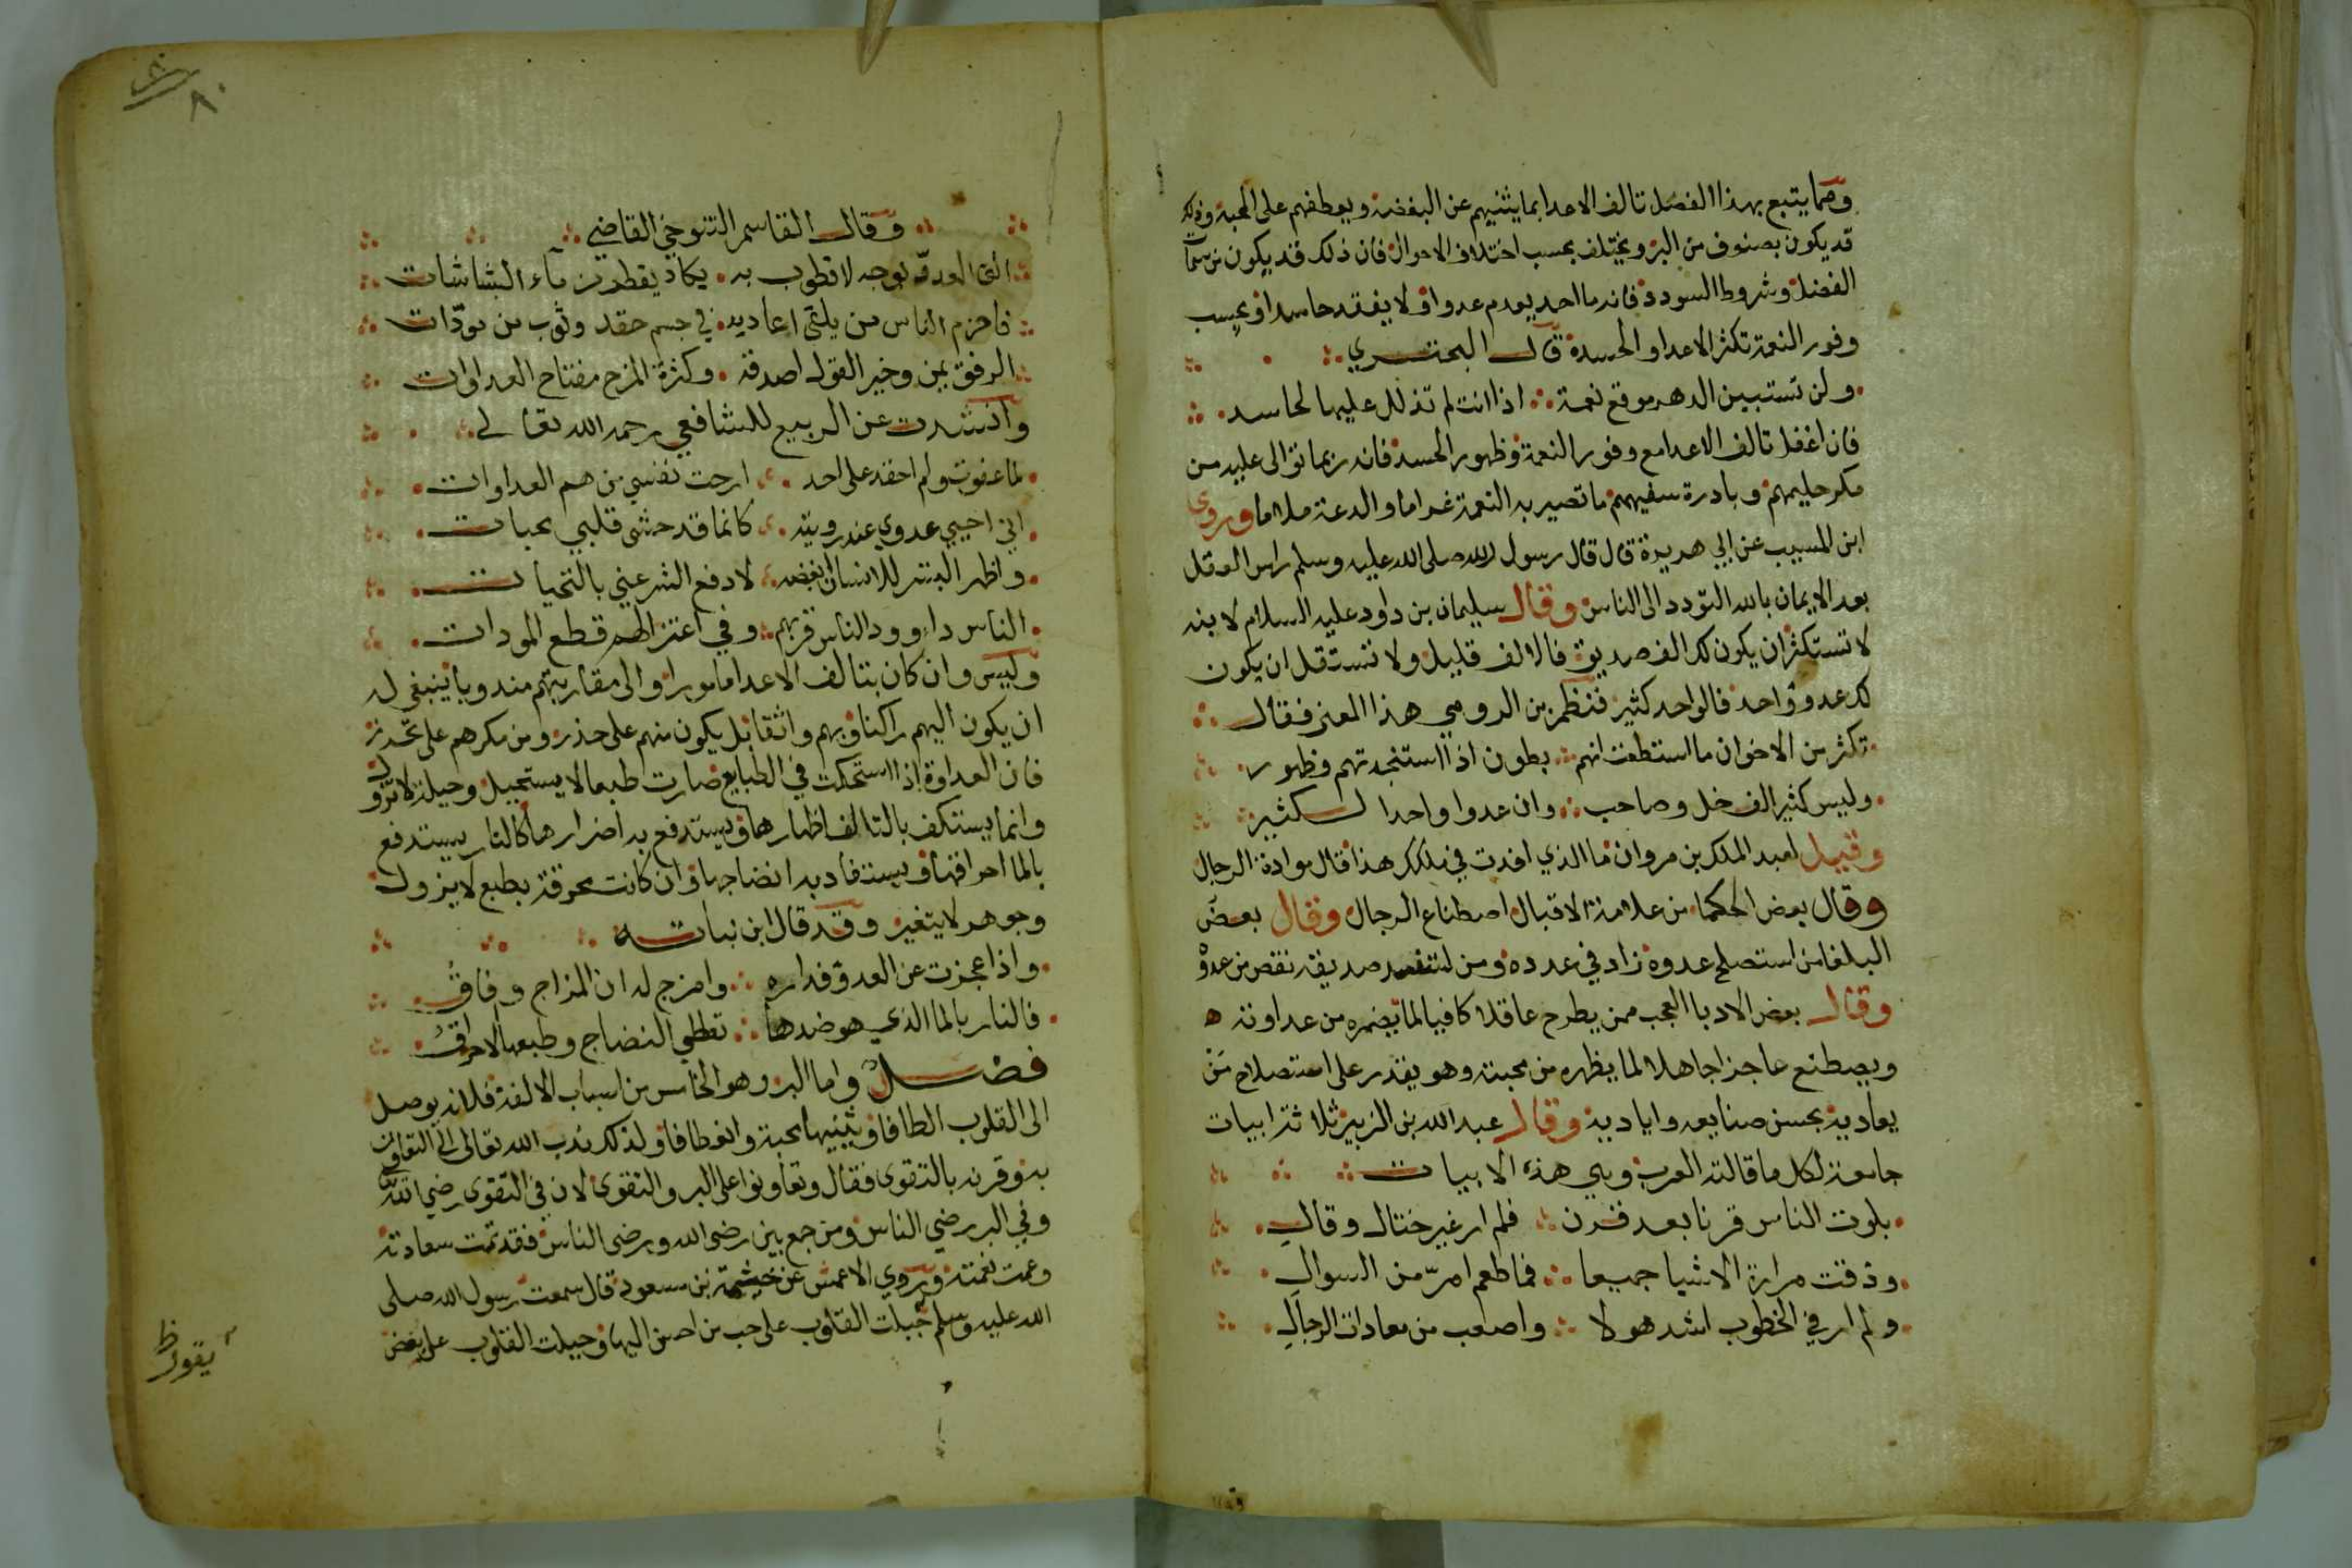 ومما يتبع بهذا الفصل تالف الاعدا بما يثنيهم عن البغضة ويعطفهم على المحبة وذلك
قد يكون بصنوف من البر ويختلف بحسب اختلاف الاحوال فان ذلك قد يكون من سمات
الفضل وشروط السودد فانه ما احد يعدم عدوا ولا يفقد حاسدا وبحسب
وفور النعمة تكثر الاعدا والحسدة قال البحتري
ولن تستبين الدهر موقع نعمة اذا انت لم تدلل عليها لحاسد
فان اغفل تالف الاعدا مع وفور النعمة وظهور الحسدة فانه ربما توالى عليه من
مكر حليمهم وبادرة سفيههم ما تصير به النعمة غراما والدعة ملاما وروى
ابن المسيب عن ابي هريرة قال قال رسول الله صلى الله عليه وسلم راس العقل
بعد الايمان بالله التودد الى الناس وقال سليمان بن داود عليه السلام لابنه
لا تستكثر ان يكون لك الف صديق فالالف قليل ولا تستقل ان يكون
لك عدو واحد فالواحد كثير فنظم بن الرومي هذا المعنى فقال
تكثر من الاخوان ما استطعت انهم بطون اذا استنجدتهم وظهور
وليس كثير الف خل وصاحب وان عدوا واحدا لكثير
وقيل لعبد الملك بن مروان ما الذي افدت في ملكك هذا قال موادة الرجال
وقال بعض الحكما من علامة الاقبال اصطناع الرجال وقال بعض
البلغا من استصلح عدوه زاد في عدده ومن استفسد صديقه نقص من عدده
وقال بعض الادبا العجب ممن يطرح عاقلا كافيا لما يضمره من عداوته
ويصطنع عاجزا جاهلا لما يظهره من محبته وهو يقدر على استصلاح من
يعاديه بحسن صنايعه واياديه وقال عبد الله بن الزبير ثلاثة ابيات
جامعة لكل ما قالته العرب وهي هذه الابيات
بلوت الناس قرنا بعد قرن فلم ار غير ختال وقال
وذقت مرارة الاشيا جميعا فما طعم امر من السوال
ولم ار في الخطوب اشد هولا واصعب من معادات الرجال
٨٠
وقال القاسم التنوخي القاضي
الق العدو بوجه لا قطوب به يكاد يقطر من مآء البشاشات
فاحزم الناس من يلقى اعاديه في جسم حقد وثوب من مودات
الرفق يمن وخير القول اصدقه وكثرة المزح مفتاح العداوات
وانشدت عن الربيع للشافعي رحمه الله تعالى
لما عفوت ولم احقد على احد ارحت نفسي من هم العداوات
اني احيي عدوي عند رويته كانما قد حشى قلبي محبات
واظهر البشر للانسان ابغضه لادفع الشر عني بالتحيات
الناس داء وود الناس قربهم وفي اعتزالهم قطع المودات
وليس وان كان بتالف الاعدا مامورا والى مقاربتهم مندوبا ينبغي له
ان يكون اليهم راكنا وبهم واثقا بل يكون منهم على حذر ومن مكرهم على تحرز
فان العداوة اذا استحكمت في الطبايع صارت طبعا لا يستحيل وجبلة لا تزول
وانما يستكف بالتالف اظهارها ويستدفع به اضرارها كالنار يستدفع
بالما احراقها ويستفاد به انضاجها وان كانت محرقة بطبع لا يزول
وجوهر لا يتغير وقد قال ابن نباته
واذا عجزت عن العدو فداره وامزج له ان المزاج وفاق
فالنار بالما الذي هو ضدها تعطي النضاج وطبعها الاحراق
فصل واما البر وهو الخامس من اسباب الالفة فلانه يوصل
الى القلوب الطافا ويثنيها محبة وانعطافا ولذلك ندب الله تعالى الى التعاون
به وقرنه بالتقوى فقال وتعاونوا على البر والتقوى لان في التقوى رضي الله
وفي البر رضي الناس ومن جمع بين رضى الله ورضى الناس فقد تمت سعادته
وعمت نعمته وروي الاعمش عن خيثمة بن مسعود قال سمعت رسول الله صلى
الله عليه وسلم جبلت القلوب على حب من احسن اليها وجبلت القلوب على بغض
يقول ظ